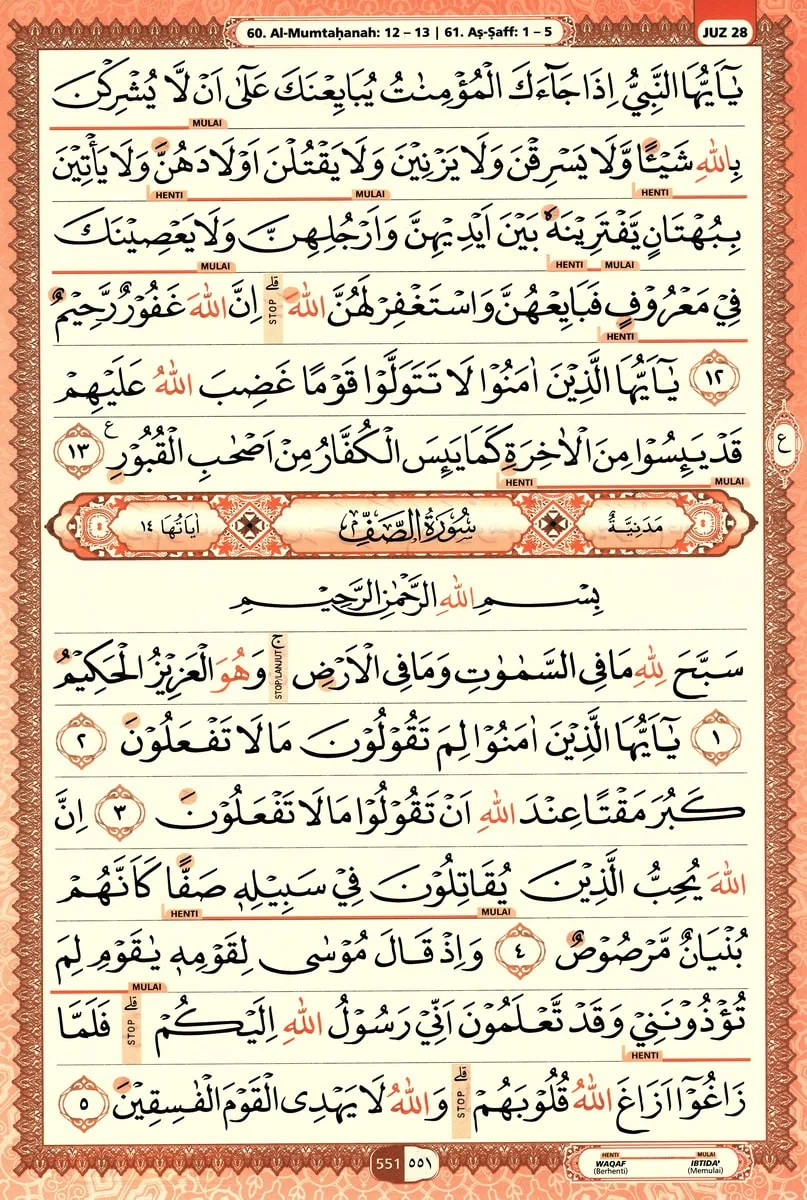 60. Al-Mumtaḥanah: 12 – 13 | 61. Aṣ-Ṣaff: 1 – 5
JUZ 28
يٰٓاَيُّهَا النَّبِيُّ اِذَا جَاۤءَكَ الْمُؤْمِنٰتُ يُبَايِعْنَكَ عَلٰٓى اَنْ لَّا يُشْرِكْنَ
MULAI
بِاللّٰهِ شَيْـًٔا وَّلَا يَسْرِقْنَ وَلَا يَزْنِيْنَ وَلَا يَقْتُلْنَ اَوْلَادَهُنَّ وَلَا يَأْتِيْنَ
HENTI MULAI HENTI
بِبُهْتَانٍ يَّفْتَرِيْنَهٗ بَيْنَ اَيْدِيْهِنَّ وَاَرْجُلِهِنَّ وَلَا يَعْصِيْنَكَ
MULAI HENTI MULAI
فِيْ مَعْرُوْفٍ فَبَايِعْهُنَّ وَاسْتَغْفِرْ لَهُنَّ اللّٰهَ ۗ STOP اِنَّ اللّٰهَ غَفُوْرٌ رَّحِيْمٌ
HENTI
١٢ يٰٓاَيُّهَا الَّذِيْنَ اٰمَنُوْا لَا تَتَوَلَّوْا قَوْمًا غَضِبَ اللّٰهُ عَلَيْهِمْ
قَدْ يَىِٕسُوْا مِنَ الْاٰخِرَةِ كَمَا يَىِٕسَ الْكُفَّارُ مِنْ اَصْحٰبِ الْقُبُوْرِ ࣖ ١٣
ع
MULAI HENTI
مَدَنِيَّةٌ سُوْرَةُ الصَّفِّ اٰيَاتُهَا ١٤
بِسْمِ اللّٰهِ الرَّحْمٰنِ الرَّحِيْمِ
سَبَّحَ لِلّٰهِ مَا فِى السَّمٰوٰتِ وَمَا فِى الْاَرْضِ ۚ STOP/LANJUT وَهُوَ الْعَزِيْزُ الْحَكِيْمُ
١ يٰٓاَيُّهَا الَّذِيْنَ اٰمَنُوْا لِمَ تَقُوْلُوْنَ مَا لَا تَفْعَلُوْنَ ٢
كَبُرَ مَقْتًا عِنْدَ اللّٰهِ اَنْ تَقُوْلُوْا مَا لَا تَفْعَلُوْنَ ٣ اِنَّ
اللّٰهَ يُحِبُّ الَّذِيْنَ يُقَاتِلُوْنَ فِيْ سَبِيْلِهٖ صَفًّا كَاَنَّهُمْ
MULAI HENTI
بُنْيَانٌ مَّرْصُوْصٌ ٤ وَاِذْ قَالَ مُوْسٰى لِقَوْمِهٖ يٰقَوْمِ لِمَ
MULAI
تُؤْذُوْنَنِيْ وَقَدْ تَّعْلَمُوْنَ اَنِّيْ رَسُوْلُ اللّٰهِ اِلَيْكُمْ ۗ STOP فَلَمَّا
HENTI
زَاغُوْٓا اَزَاغَ اللّٰهُ قُلُوْبَهُمْ ۗ STOP وَاللّٰهُ لَا يَهْدِى الْقَوْمَ الْفٰسِقِيْنَ ٥
551 ٥٥١
HENTI MULAI
WAQAF IBTIDA'
(Berhenti) (Memulai)